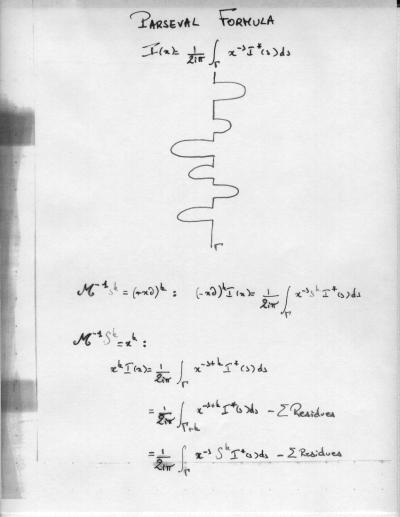 PARSEVAL FORMULA
I(x) = 1/2iπ ∫_Γ x^-s I*(s) ds
Γ
M^-1 S^k = (-x∂)^k : (-x∂)^k I(x) = 1/2iπ ∫_Γ x^-s S^k I*(s) ds
M^-1 S^k = x^k :
x^k I(x) = 1/2iπ ∫_Γ x^-s+k I*(s) ds
= 1/2iπ ∫_Γ+k x^-s+k I*(s) ds - Σ Residues
= 1/2iπ ∫_Γ x^-s S^k I*(s) ds - Σ Residues